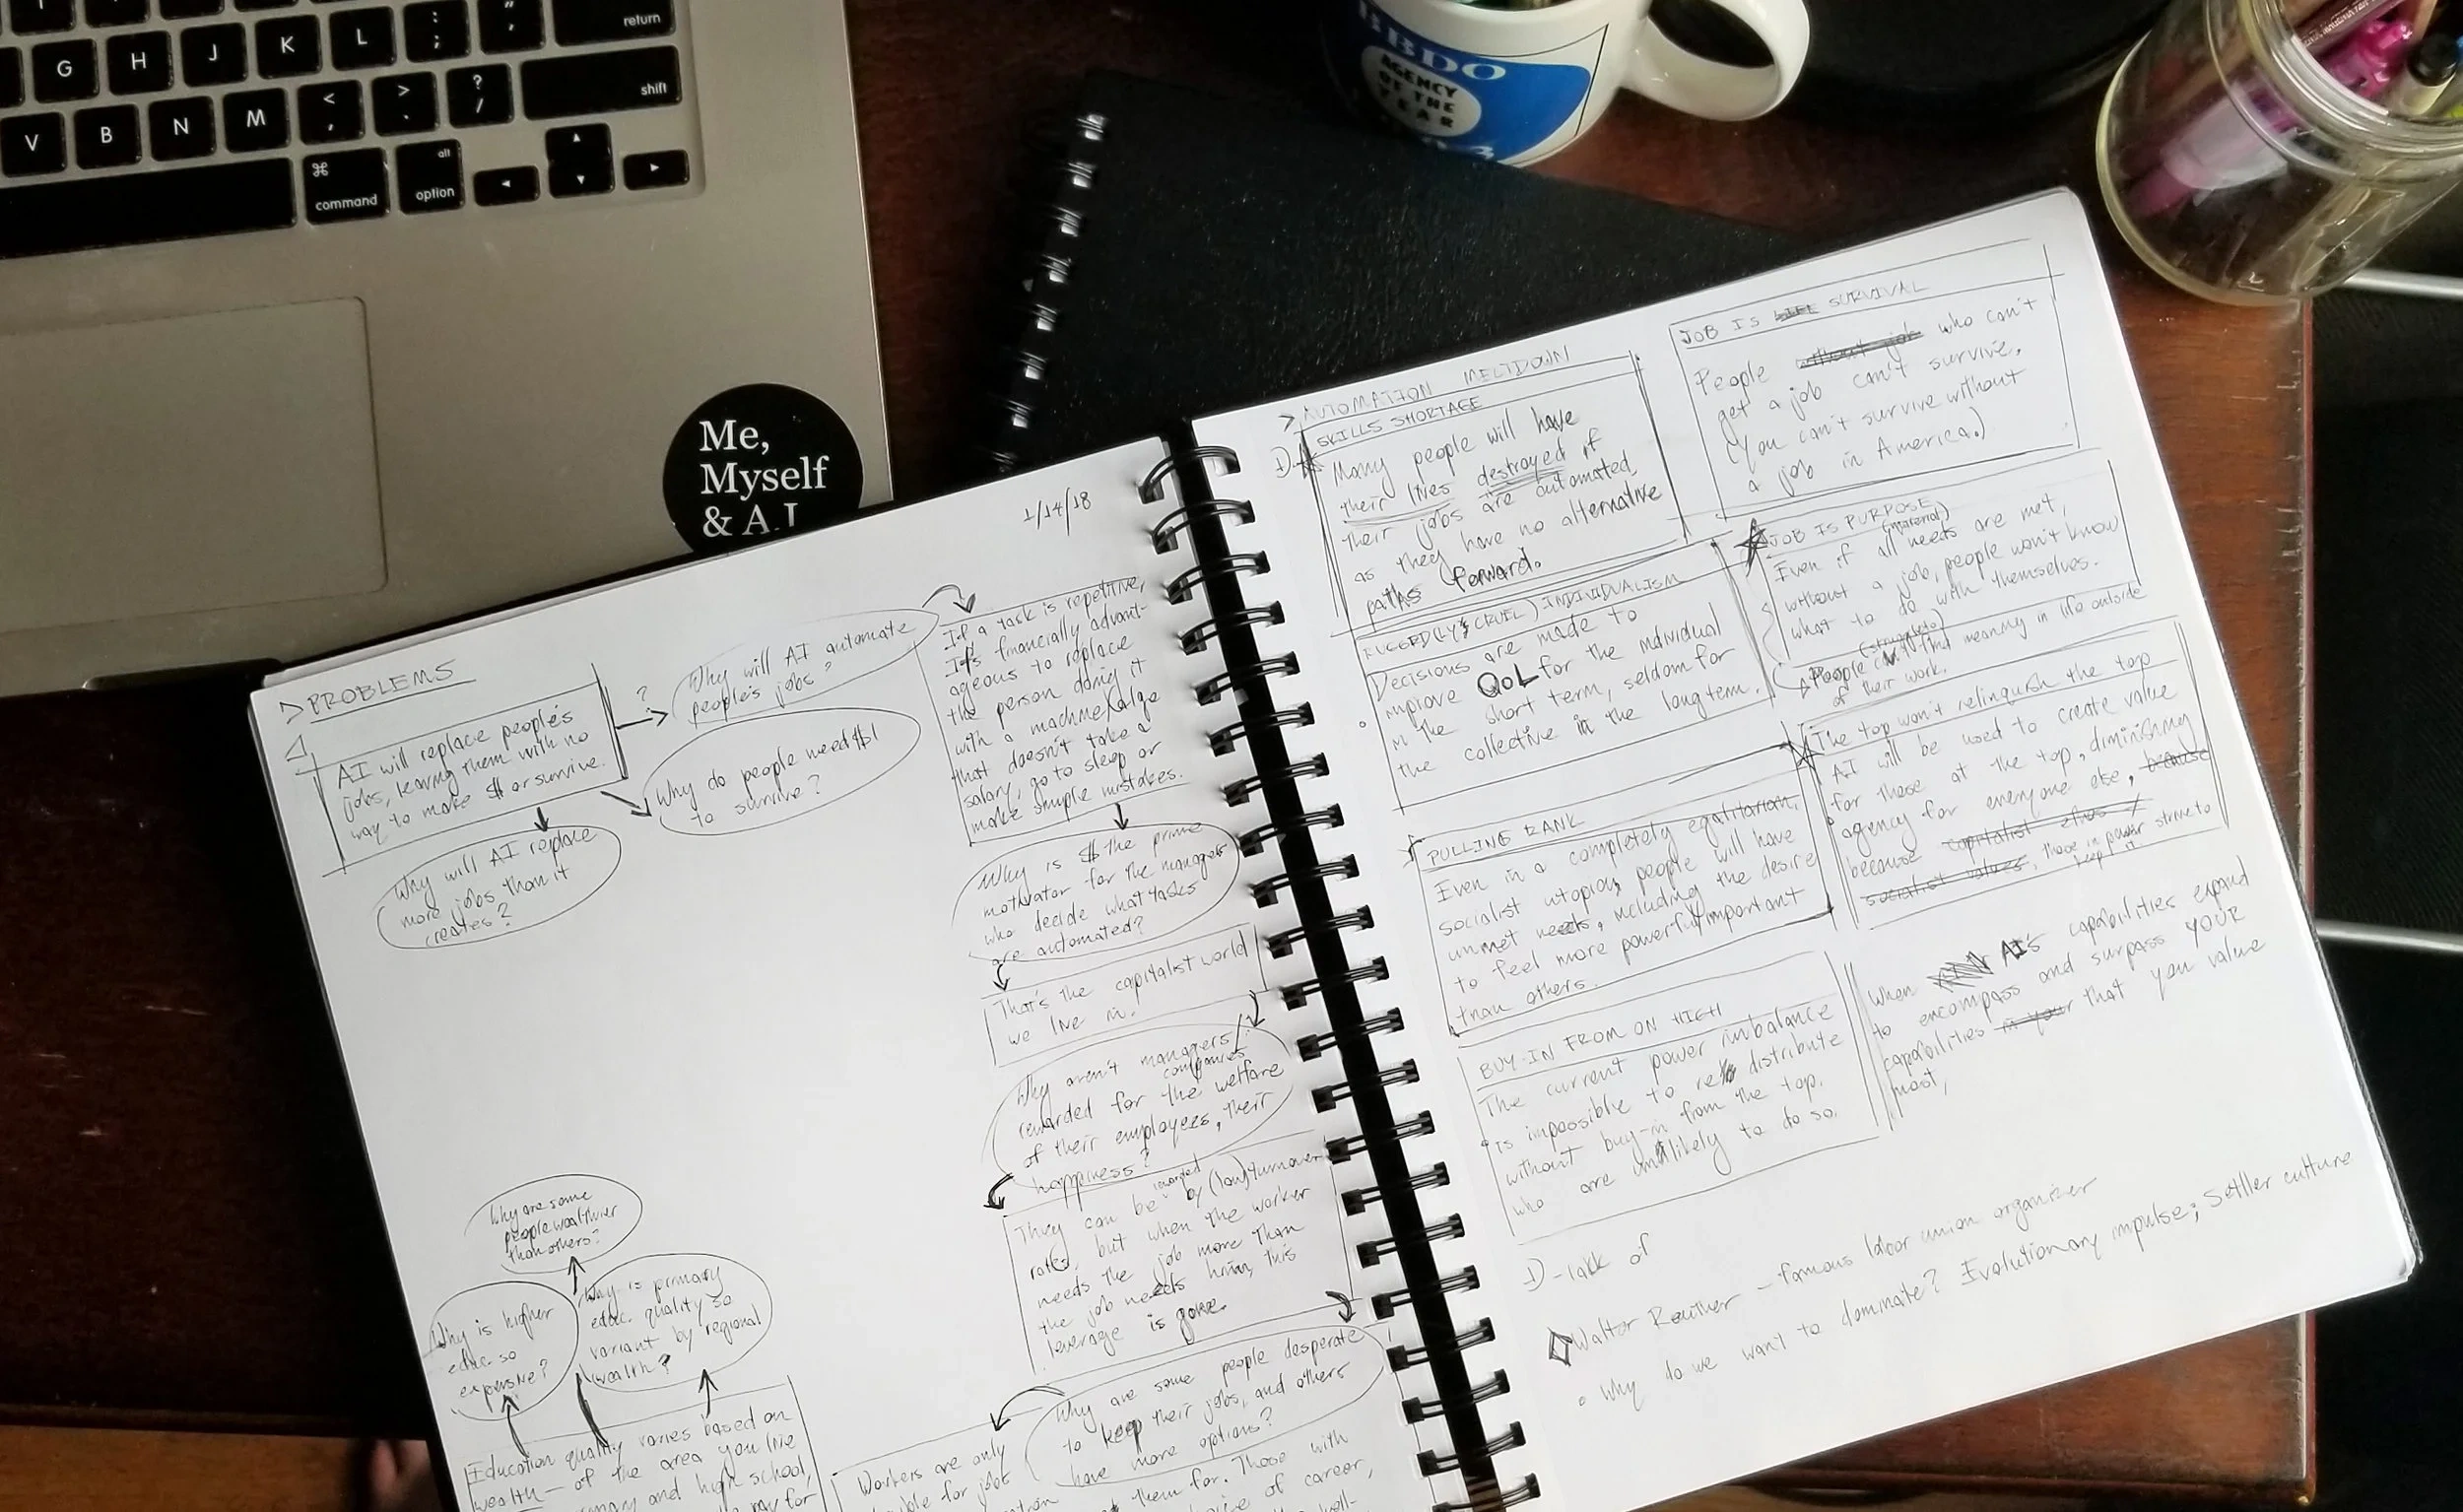 return
G H J K L : ; " '
shift
V B N M < , > . ? /
⌘
command
alt
option
BBDO
AGENCY
OF THE
YEAR
Me,
Myself
& A.I.
1/14/18
> PROBLEMS
AI will replace people's
jobs, leaving them with no
way to make $ or survive.
?
Why will AI automate
people's jobs?
Why do people need $
to survive?
Why will AI replace
more jobs than it
creates?
If a task is repetitive,
it's financially advant-
ageous to replace
the person doing it
with a machine/algo
that doesn't take a
salary, go to sleep or
make simple mistakes.
Why is $ the prime
motivator for the managers
who decide what tasks
are automated?
That's the capitalist world
we live in.
Why aren't managers/
companies
rewarded for the welfare
of their employees, their
happiness?
rewarded
They can be by (low) turnover
rates, but when the worker
needs the job more than
the job needs him, this
leverage is gone.
Why are some people desperate
to keep their jobs, and others
have more options?
Workers are only
for jobs
them for. Those with
of career,
Why are some
people wealthier
than others?
Why is higher
educ. so
expensive?
Why is primary
educ. quality so
variant by regional
wealth?
Education quality varies based on
wealth — of the area you live
and high school,
> AUTOMATION MELTDOWN
SKILLS SHORTAGE
Many people will have
their lives destroyed if
their jobs are automated,
as they have no alternative
paths forward.
(CRUEL) INDIVIDUALISM
Decisions are made to
improve QoL for the individual
in the short term, seldom for
the collective in the long term.
PULLING RANK
Even in a completely egalitarian,
socialist utopia, people will have
unmet needs, including the desire
to feel more powerful/important
than others.
BUY-IN FROM ON HIGH
The current power imbalance
is impossible to redistribute
without buy-in from the top,
who are unlikely to do so.
JOB IS LIFE SURVIVAL
People without job who can't
get a job can't survive.
(You can't survive without
a job in America.)
JOB IS PURPOSE
(material)
Even if all needs are met,
without a job, people won't know
what to do with themselves.
(struggle to)
People can't find meaning in life outside
of their work.
The top won't relinquish the top
AI will be used to create value
for those at the top, diminishing
agency for everyone else, because
because capitalist ethos /
socialist values, those in power strive to
keep it.
When AI's capabilities expand
to encompass and surpass YOUR
capabilities in your that you value
most,
1) - lack of
Walter Reuther - famous labor union organizer
• Why do we want to dominate? Evolutionary impulse; settler culture